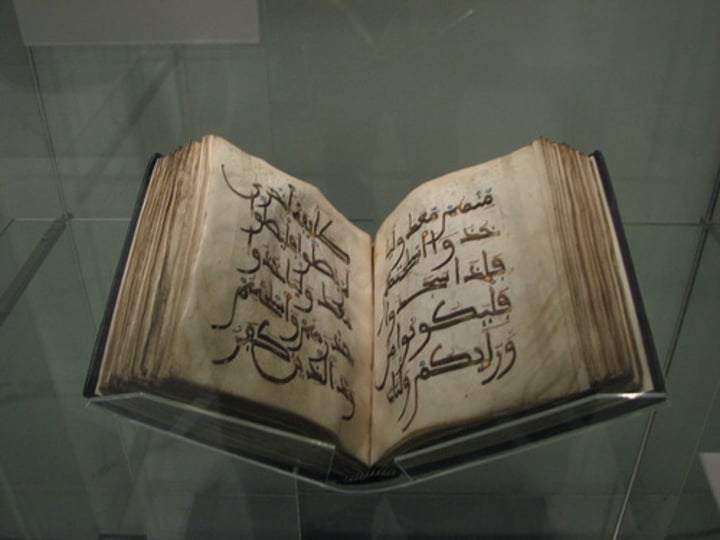 منهم معك وليا
خذوا اسلحتهم
فاذا سجدوا
فليكونوا من
ورايكم ولتات
طايفة اخرى
لم يصلوا فليصلوا
معك وليا خذوا
حذرهم واسلحتهم
ود الذين كفر